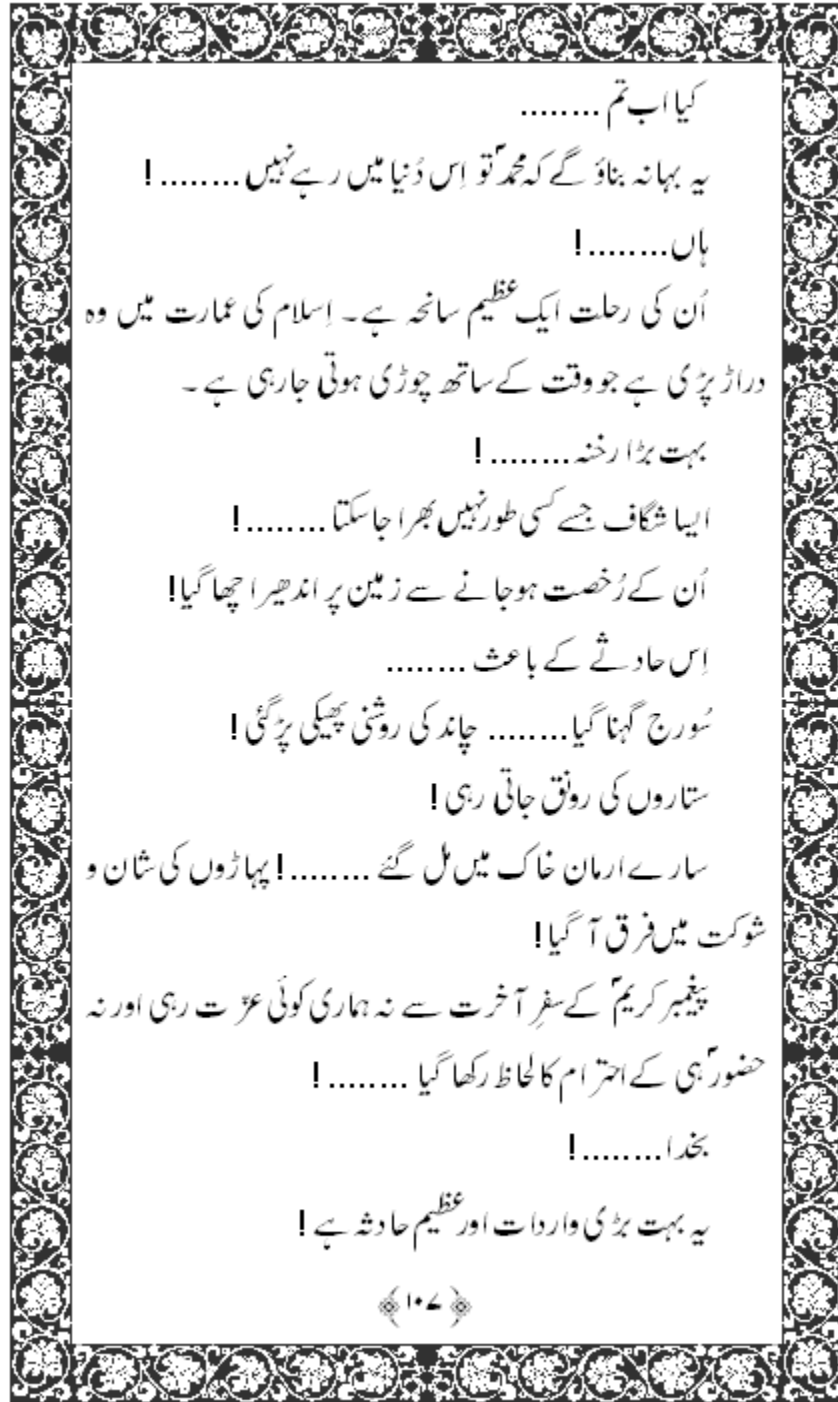 کیا اب تم ........
یہ بہانہ بناؤ گے کہ محمدؐ تو اِس دُنیا میں رہے نہیں ........ !
ہاں ........ !
اُن کی رحلت ایک عظیم سانحہ ہے۔ اِسلام کی عمارت میں وہ
دراڑ پڑی ہے جو وقت کے ساتھ چوڑی ہوتی جارہی ہے ۔
بہت بڑا رخنہ ........ !
ایسا شگاف جسے کسی طور نہیں بھرا جاسکتا ........ !
اُن کے رُخصت ہوجانے سے زمین پر اندھیرا چھا گیا!
اِس حادثے کے باعث ........
سُورج گہنا گیا ........ چاند کی روشنی پھیکی پڑگئی !
ستاروں کی رونق جاتی رہی !
سارے ارمان خاک میں مل گئے ........ ! پہاڑوں کی شان و
شوکت میں فرق آ گیا!
پیغمبر کریمؐ کے سفرِ آخرت سے نہ ہماری کوئی عزّت رہی اور نہ
حضورؐ ہی کے احترام کا لحاظ رکھا گیا ........ !
بخدا ........ !
یہ بہت بڑی واردات اور عظیم حادثہ ہے !
﴿۱۰۷﴾